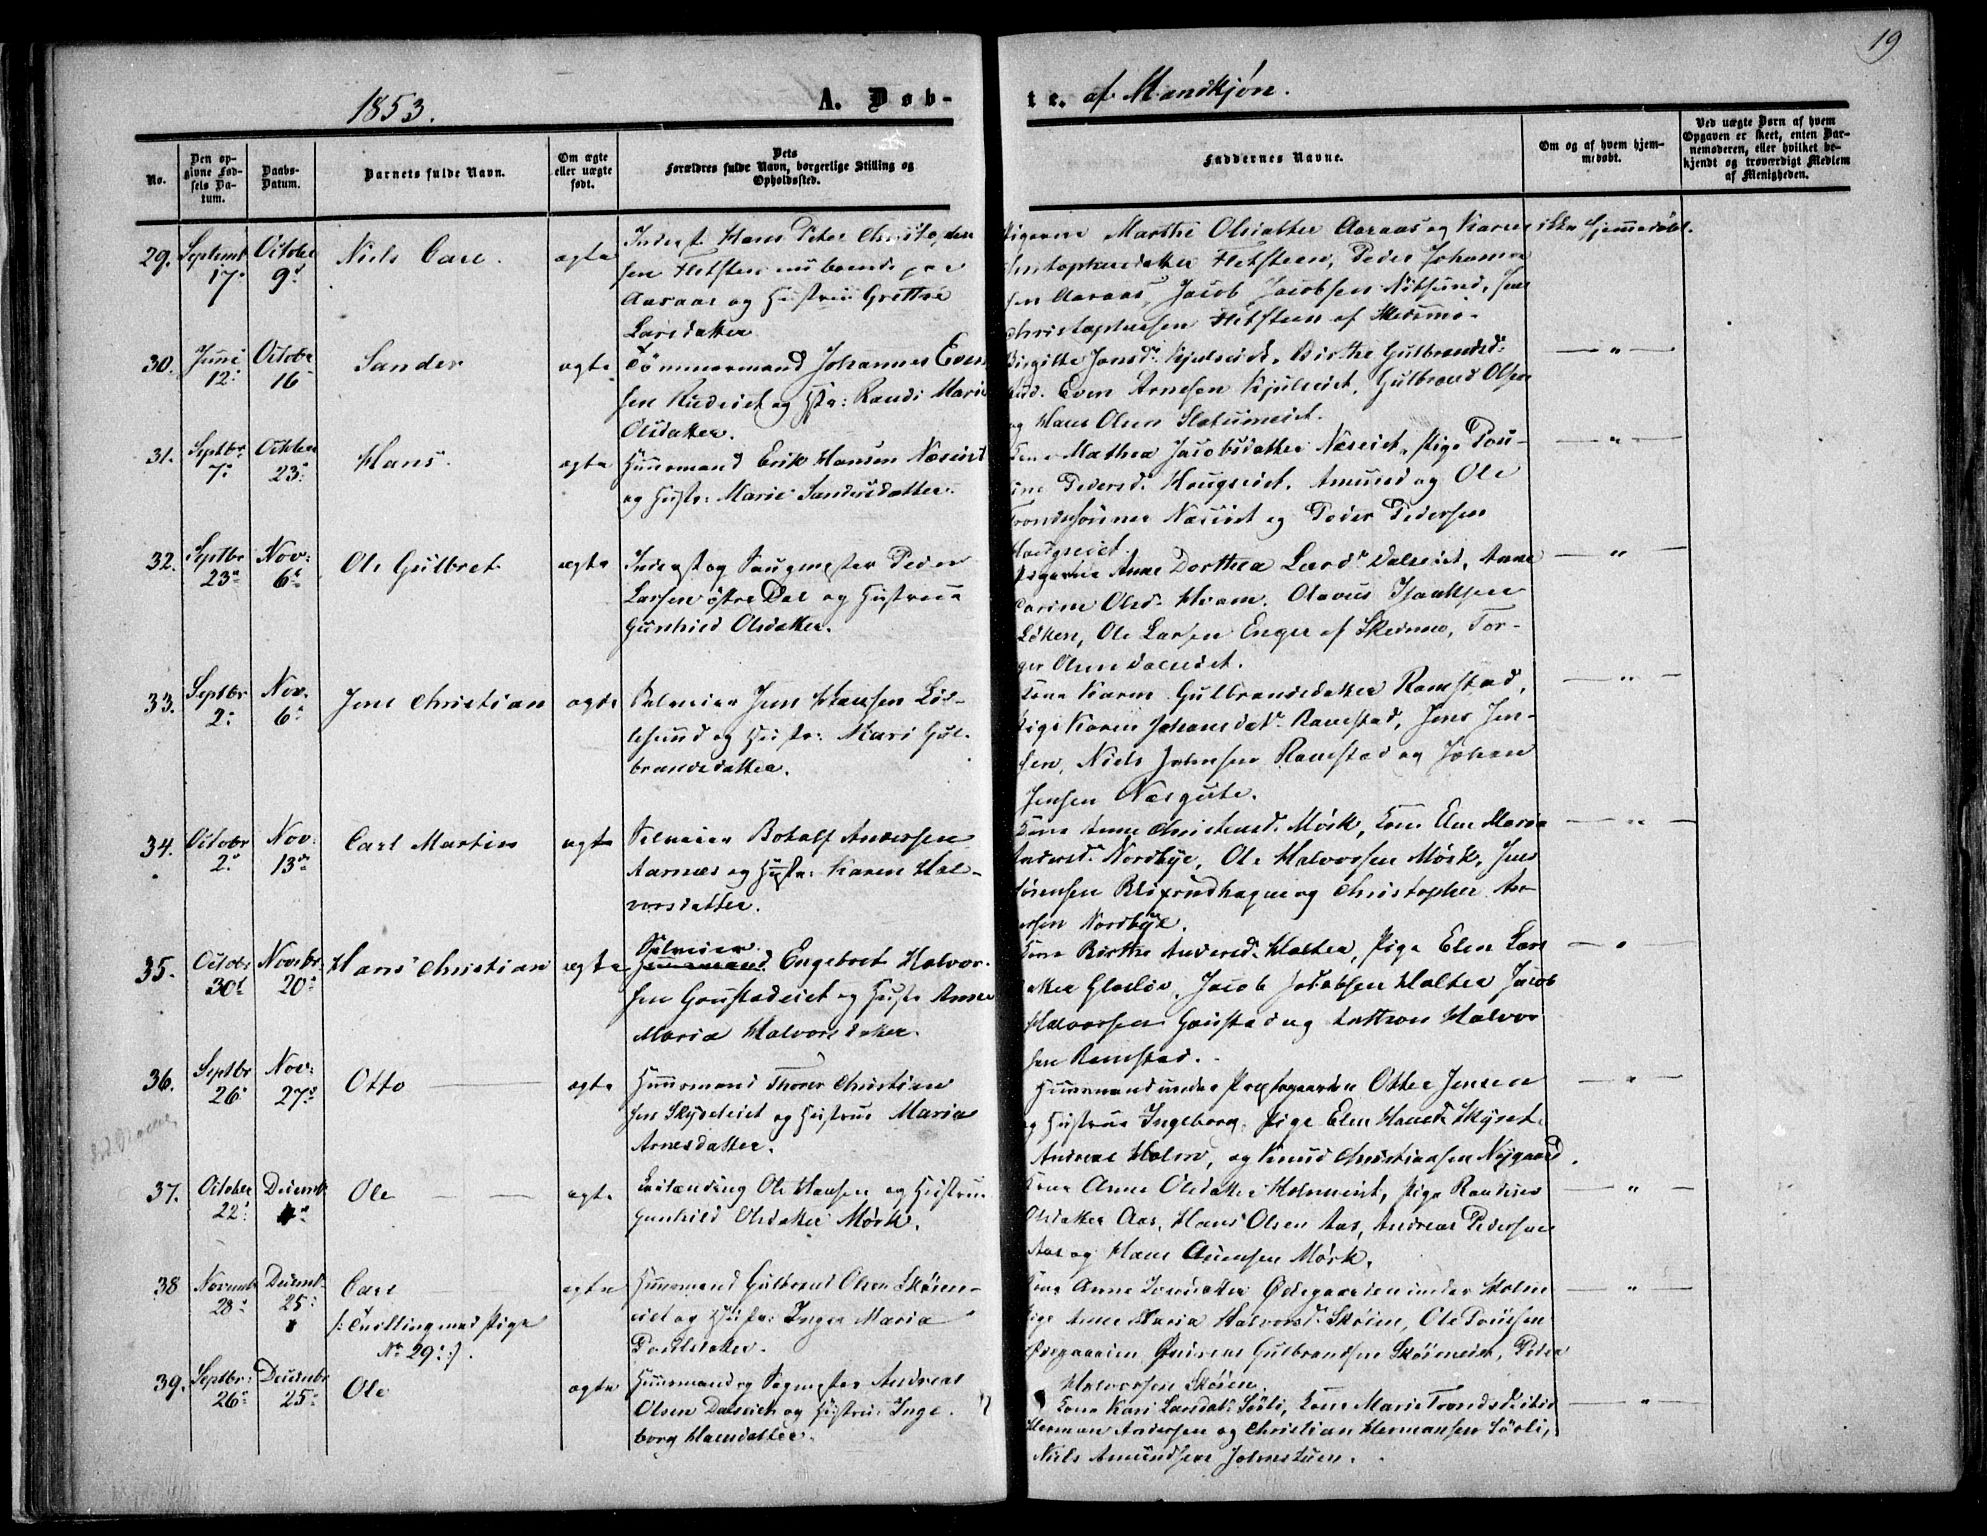 19
1853.
A. Døb-
te. af Mandkjøn.
No.
Den op-
givne Fød-
sels Da-
tum.
Daabs-
Datum.
Barnets fulde Navn.
Om ægte
eller uægte
født.
Dets
Forældres fulde Navn, borgerlige Stilling og
Opholdssted.
Faddernes Navne.
Om og af hvem hjem-
medøbt.
Ved uægte Børn af hvem
Opgaven er skeet, enten Bar-
nemoderen, eller hvilket be-
kjendt og troværdigt Medlem
af Menigheden.
29. Septemb 17. October 9d Niels Carl. ægte
Inderst Hans Peter Christophersen
Aaraas og Hustru Grethe
Larsdatter
Pigerne Marthe Olsdatter Aaraas og Karen
Christophersdatter Fletsteen, Peder Johanne
sen Aaraas, Jacob Jacobsen Nitsund, Jens
Christophersen Fletsteen af Skedsmo.
ikke hjemmedøbt.
30. Juni 12. Octobr 16 Sander ægte
Tømmermand Johannes Even
sen Rudeiet og Hstr: Randi Marie
Olsdatter.
Birgitte Jonsdr Kjulseiet, Birthe Gulbrandsd.
Rud. Even Arnesen Kjulseiet, Gulbrand Olsen
og Hans Olsen Slatumeiet.
— " —
31. Septbr 7. October 23. Hans. ægte
Huusmand Erik Hansen Næseiet
og Hustr: Marie Sandersdatter.
Kone Mathea Jacobsdatter Næseiet, Pige Pou-
line Pedersd. Haugseiet, Amund og Ole
Trondsønner Næseiet og Peder Pedersen
Haugseiet.
— " —
32. Septbr 23. Nov: 6. Ole Gulbret ægte
Inderst og Saugmester Peder
Larsen østre Dal og Hustrue
Gunhild Olsdatter.
Pigerne Anne Dorthea Larsdr Dalseiet, Anne
Carine Olsd. Hvam. Olavus Isaaksen
Løken, Ole Larsen Enger af Skedsmo, Tor-
ger Olsen Dalseiet.
— " —
33. Septbr 2. Nov. 6. Jens Christian ægte
Selveier Jens Hansen Lil-
lesund og Hustr: Mari Gul-
brandsdatter.
Kone Karen Gulbrandsdatter Ramstad,
Pige Karen Johansdatr Ramstad, Jens Jen-
sen, Niels Johnsen Ramstad og Johan
Jensen Næsgute.
— " —
34. Octobr 2. Nov: 13de Carl Martin ægte
Selveier Botolf Andersen
Aarnæs og Hustr: Karen Hal-
vorsdatter.
Kone Anne Christensd. Mörk, Kone Elen Maria
Andersd. Nordbye, Ole Halvorsen Mørk, Jens
Sørensen Blixrudhagen og Christopher An-
dersen Nordbye.
— " —
35. Octobr 30d Novbr 20. Hans Christian ægte
Selveier
Huusmand Engebret Halvor-
sen Gaustadeiet og Hustr Anne
Maria Halvorsdatter.
Kone Birthe Andersd. Halter, Pige Elen Lars
datter Glosløv, Jacob Jacobsen Halter Jacob
Halvorsen Gaustad og Anthon Halvor
sen Ramstad.
— " —
36. Septbr 26 Nov: 27. Otto ægte
Huusmand Thorer Christian
sen Skjeseteiet og Hustrue Maria
Arnesdatter.
Huusmand under Præstegaarden Otter Jensen
og Hustrue Ingeborg, Pige Elen Hansd. Skjset,
Andreas Holm, og Knud Christiansen Nygaard.
— " —
37. October 22. Decemb Ole ægte
Ole Hansen og Hustrue
Gunhild Olsdatter Mørk.
Kone Anne Olsdatter Holmseiet, Pige Randine
Olsdatter Aas, Hans Olsen Aas, Andreas Pedersen
Aas og Hans Mørk.
— " —
38 Novemb 28. Decemb. 25. Carl ægte
/: Tvilling med Pige
No 29 :/.
Huusmand Gulbrand Olsen Skøien-
eiet og Hustr: Inger Maria
Poulsdatter.
Kone Anne Iversdatter Ødegaarden under Holm
Pige Anne Maria Halvorsd. Skøien, Ole Poulsen
Ødegaarden Gulbrandsen Skøieneiet, Peder
Halvorsen Skøien.
— " —
39. Septbr. 26. Decembr 25. Ole ægte
Huusmand og Sagmester Andreas
Olsen Dalseiet og Hustrue Inge-
borg Hansdatter.
Kone Kari Larsdatr Sörli, Kone Marie
Herman Andersen og Christian Hermansen Sörli,
Niels Amundsen Johnstuen.
— " —